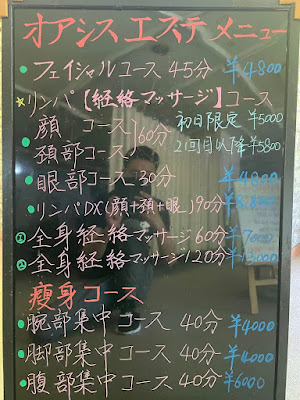 オアシス エステ メニュー
• フェイシャルコース 45分 ¥4800
☆リンパ【経絡マッサージ】コース
顔 コース
頚部コース
60分
初日限定 ¥5000
2回目以降¥5800
• 眼部コース 30分 ¥4800
• リンパDX(顔+頚+眼)90分
① 全身経絡マッサージ60分 ¥7000
② 全身経絡マッサージ120分 ¥13000
痩身コース
• 腕部集中コース 40分 ¥4000
• 脚部集中コース 40分 ¥4000
• 腹部集中コース 40分 ¥6000